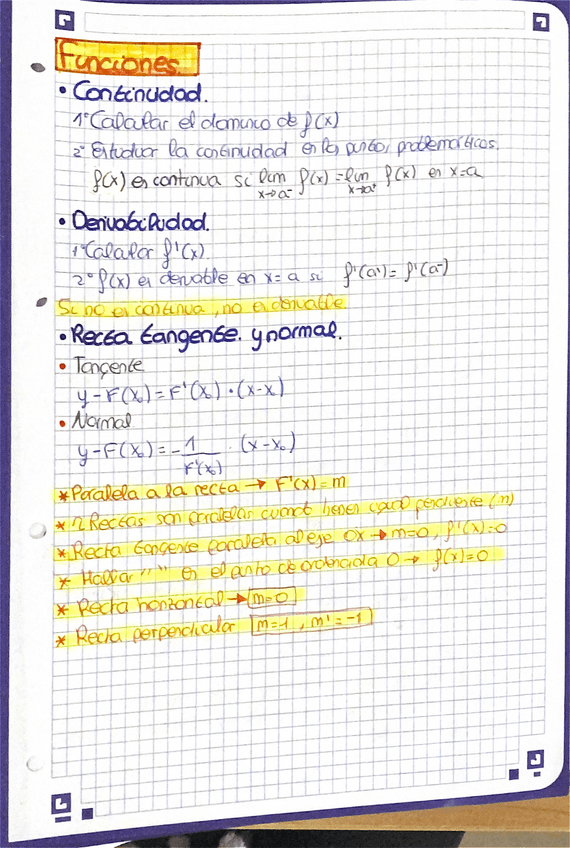 Funciones.
• Continuidad.
1º Calcular el dominio de f(x)
2º Estudiar la continuidad en los puntos problemáticos.
f(x) es continua si lim x→a⁻ f(x) = lim x→a⁺ f(x) en x=a
• Derivabilidad.
1º Calcular f'(x)
2º f(x) es derivable en x=a si f'(a⁺) = f'(a⁻)
Si no es continua, no es derivable
• Recta tangente. y normal.
• Tangente
y-F(x₀)=F'(x₀)·(x-x₀)
• Normal
y-F(x₀)=-1/F'(x₀) · (x-x₀)
* Paralela a la recta → F'(x)=m
* 2 Rectas son paralelas cuando tienen igual pendiente (m)
* Recta tangente paralela al eje OX → m=0, f'(x)=0
* Hallar " " en el punto de ordenada 0 → f(x)=0
* Recta horizontal → m=0
* Recta perpendicular m=1, m'=-1